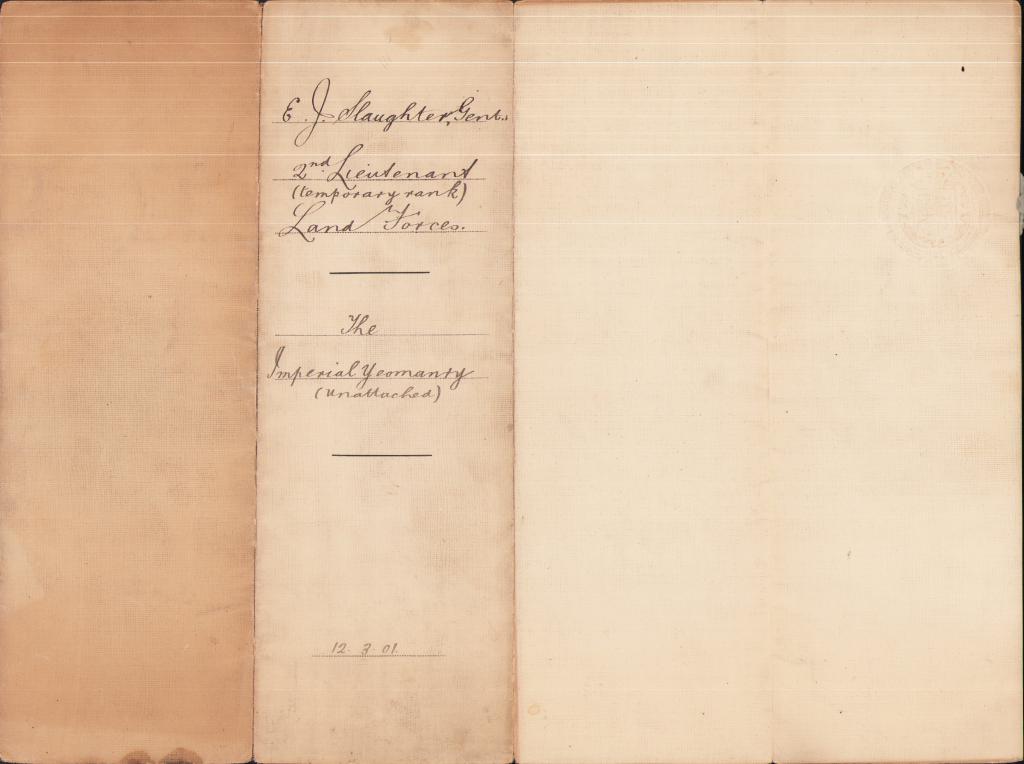 E. J. Slaughter, Gent.
2nd Lieutenant
(temporary rank)
Land Forces.
The
Imperial Yeomanry
(unattached)
12. 3. 01.